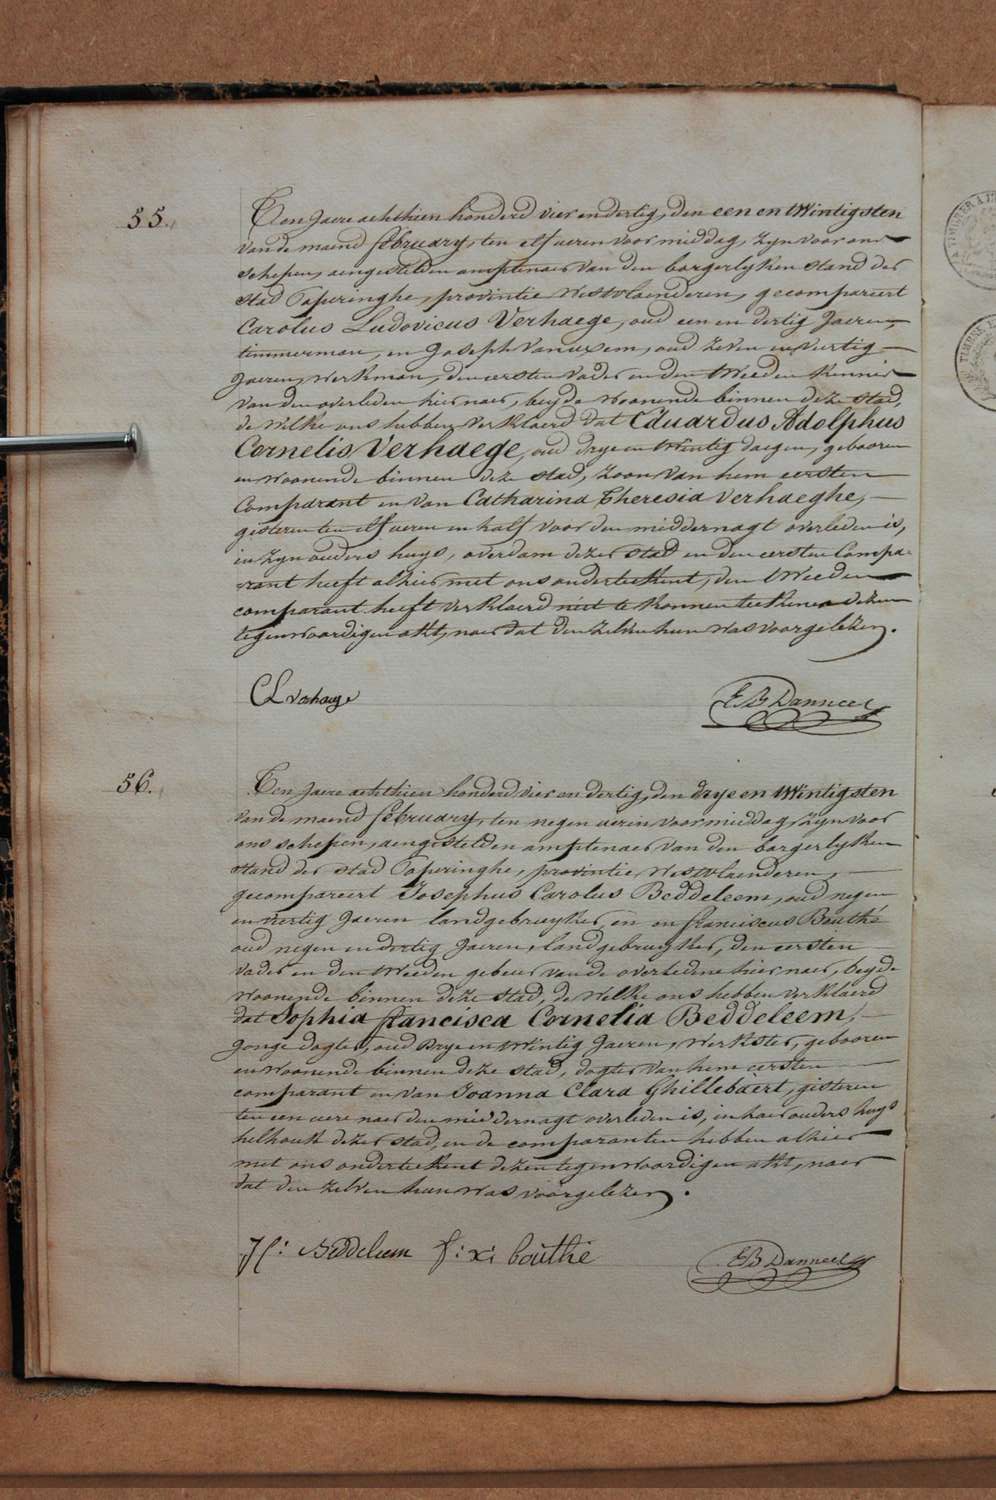 55.
Ten Jaere achthien honderd vier en dertig, den een en twintigsten
van de maend february, ten elf ueren voor middag, zyn voor ons
schepen, aengestelden amptenaer van den borgerlyken stand der
stad Poperinghe, provintie Westvlaenderen, gecompareert
Carolus Ludovicus Verhaege, oud een en dertig Jaeren,
timmerman, en Joseph Vanuxem, oud zeven en veertig
Jaeren, werkman, den eersten vader en den tweeden kennis
van den overleden hier naer, beyde woonende binnen deze stad,
de welke ons hebben verklaerd dat Eduardus Adolphus
Cornelis Verhaege, oud drye en twintig daegen, gebooren
en woonende binnen deze stad, zoon van hem eersten
Comparant en van Catharina Theresia Verhaeghe,
gisteren ten elf ueren en half voor den middernagt overleden is,
in zyn ouders huys, overdam dezer stad en den eersten Compa-
rant heeft alhier met ons onderteekent, den tweeden
comparant heeft verklaerd niet te konnen teekenen dezen
tegenwoordigen akt, naer dat den zelven hun was voorgelezen.
CL verhaege
E B Danneel
56.
Ten Jaere achthien honderd vier en dertig, den drye en twintigsten
van de maend february, ten negen ueren voormiddag, zyn voor
ons schepen, aengestelden amptenaer van den borgerlyken
stand der stad Poperinghe, provintie Westvlaenderen,
gecompareert Josephus Carolus Beddeleem, oud negen
en Jaeren landgebruyker, en en franciscus Bouthé
oud negen en dertig Jaeren, landgebruyker, den eersten
vader en den tweeden gebeur van de overledene hier naer, beyde
woonende binnen deze stad, de welke ons hebben verklaerd
dat Sophia francisca Cornelia Beddeleem,
Jonge dogter, oud drye en twintig Jaeren, werkster, gebooren
en woonende binnen deze stad, dogter van hem eersten
comparant en van Joanna Clara Ghillebaert, gisteren
ten een uere naer den middernagt overleden is, in haer ouders huys
helhoek dezer stad, en de comparanten hebben alhier
met ons onderteekent dezen tegenwoordigen akt, naer
dat den zelven hun was voorgelezen.
Beddeleem f: x: bouthé
E B Danneel